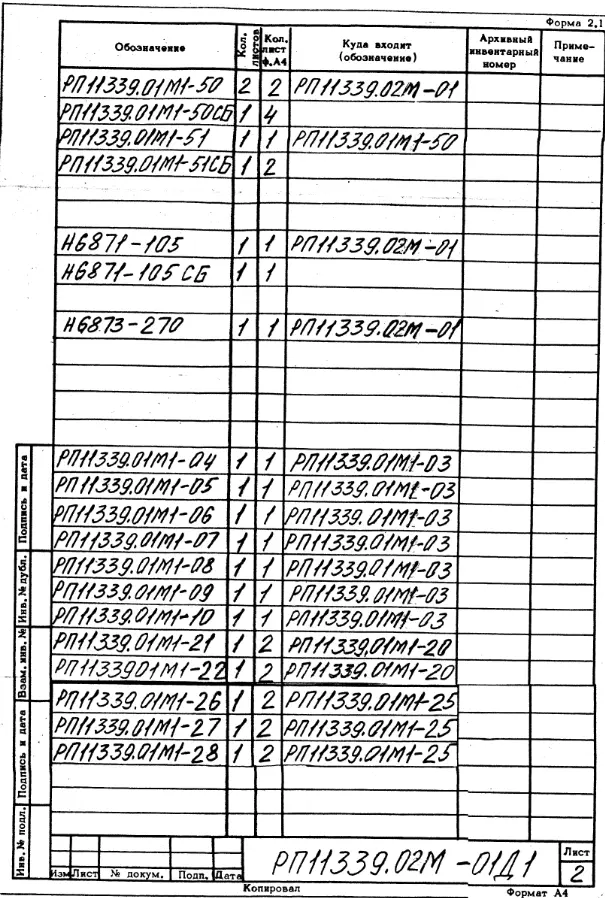 Форма 2.1
Обозначение Кол. листов Кол. лист ф.А4 Куда входит (обозначение) Архивный инвентарный номер Приме-чание
РП11339.01М1-50 2 2 РП11339.02М-01
РП11339.01М1-50СБ 1 4
РП11339.01М1-51 1 1 РП11339.01М1-50
РП11339.01М1-51СБ 1 2
Н6871-105 1 1 РП11339.02М-01
Н6871-105 СБ 1 1
Н6873-270 1 1 РП11339.02М-01
РП11339.01М1-04 1 1 РП11339.01М1-03
РП11339.01М1-05 1 1 РП11339.01М1-03
РП11339.01М1-06 1 1 РП11339.01М1-03
РП11339.01М1-07 1 1 РП11339.01М1-03
РП11339.01М1-08 1 1 РП11339.01М1-03
РП11339.01М1-09 1 1 РП11339.01М1-03
РП11339.01М1-10 1 1 РП11339.01М1-03
РП11339.01М1-21 1 2 РП11339.01М1-20
РП11339.01М1-22 1 2 РП11339.01М1-20
РП11339.01М1-26 1 2 РП11339.01М1-25
РП11339.01М1-27 1 2 РП11339.01М1-25
РП11339.01М1-28 1 2 РП11339.01М1-25
Подпись и дата
Инв. № дубл.
Взам. инв. №
Подпись и дата
Инв. № подл.
Изм Лист № докум. Подп. Дата
РП11339.02М -01Д1
Лист
2
Копировал Формат А4